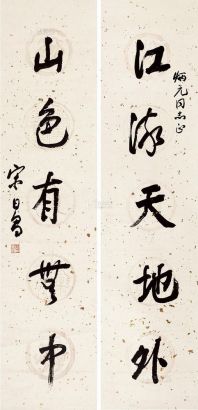 炳元同志正
江流天地外
山色有無中
宋日昌